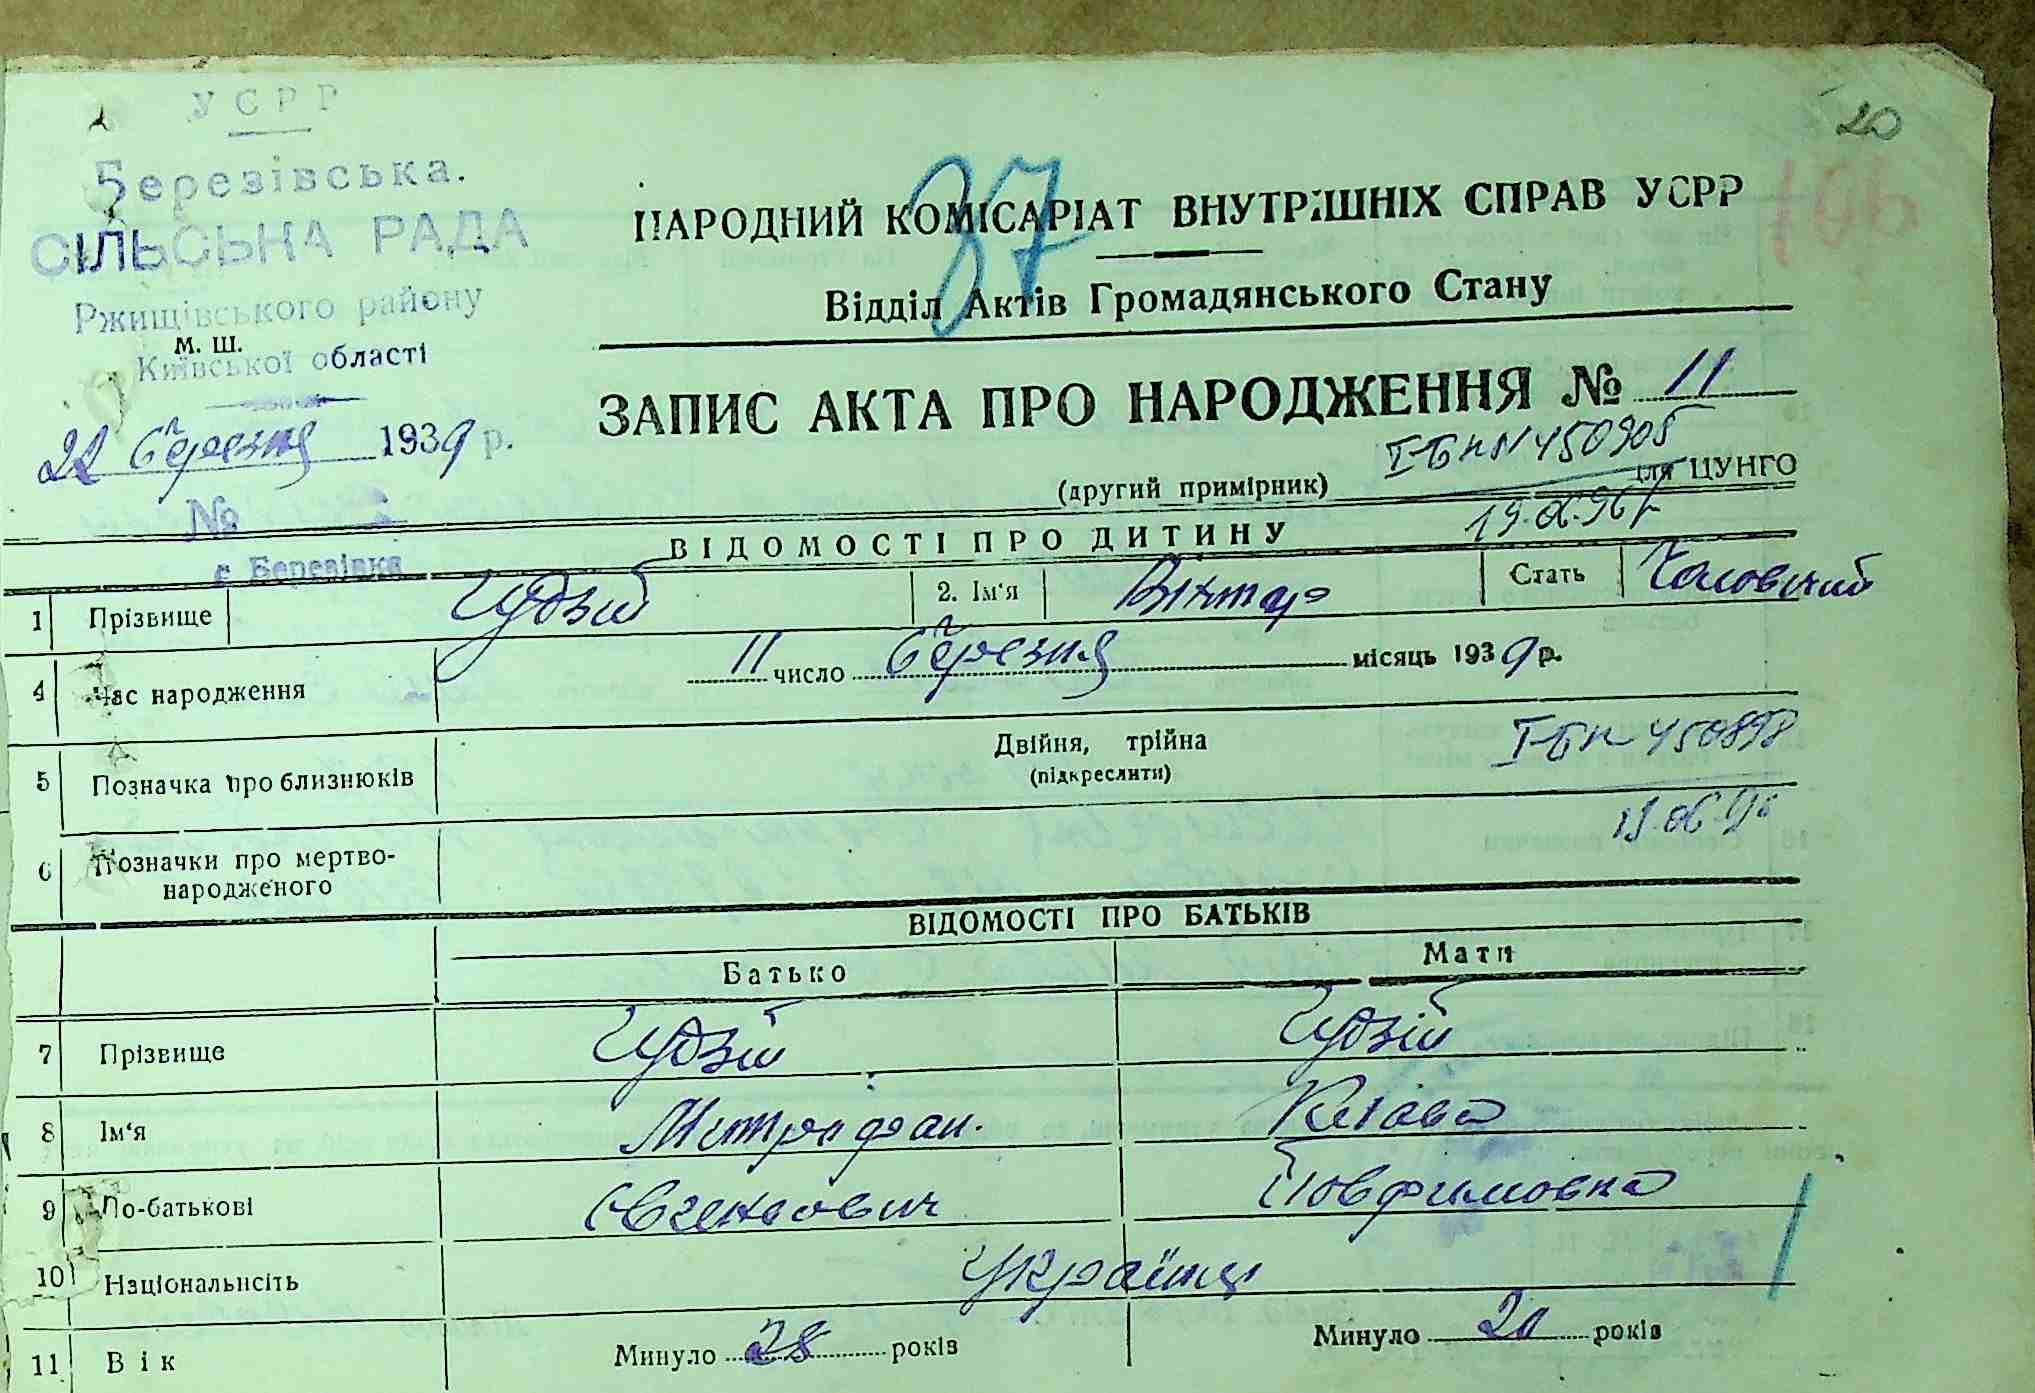 20
УСРР
Березівська.
СІЛЬСЬКА РАДА
Ржищівського району
М. Ш.
Київської області
22 березня 1939 р.
№
с Березівка
37
НАРОДНИЙ КОМІСАРІАТ ВНУТРІШНІХ СПРАВ УСРР
Відділ Актів Громадянського Стану
ЗАПИС АКТА ПРО НАРОДЖЕННЯ № 11
(другий примірник)
І-БК N 450905
для ЦУНГО
19.06.96р
ВІДОМОСТІ ПРО ДИТИНУ
1 Прізвище Чудзій 2. Ім'я Віктор Стать Чоловічий
4 Час народження 11 число березня місяць 1939 р.
5 Позначка про близнюків Двійня, трійна
(підкреслити)
І-БК 450898
19.06.96
6 Позначки про мертво-
народженого
ВІДОМОСТІ ПРО БАТЬКІВ
Батько Мати
7 Прізвище Чудзій Чудзій
8 Ім'я Митрофан.
9 По-батькові Євгенович Повфимовна
10 Національність Українці
11 Вік Минуло 28 років Минуло 20 років